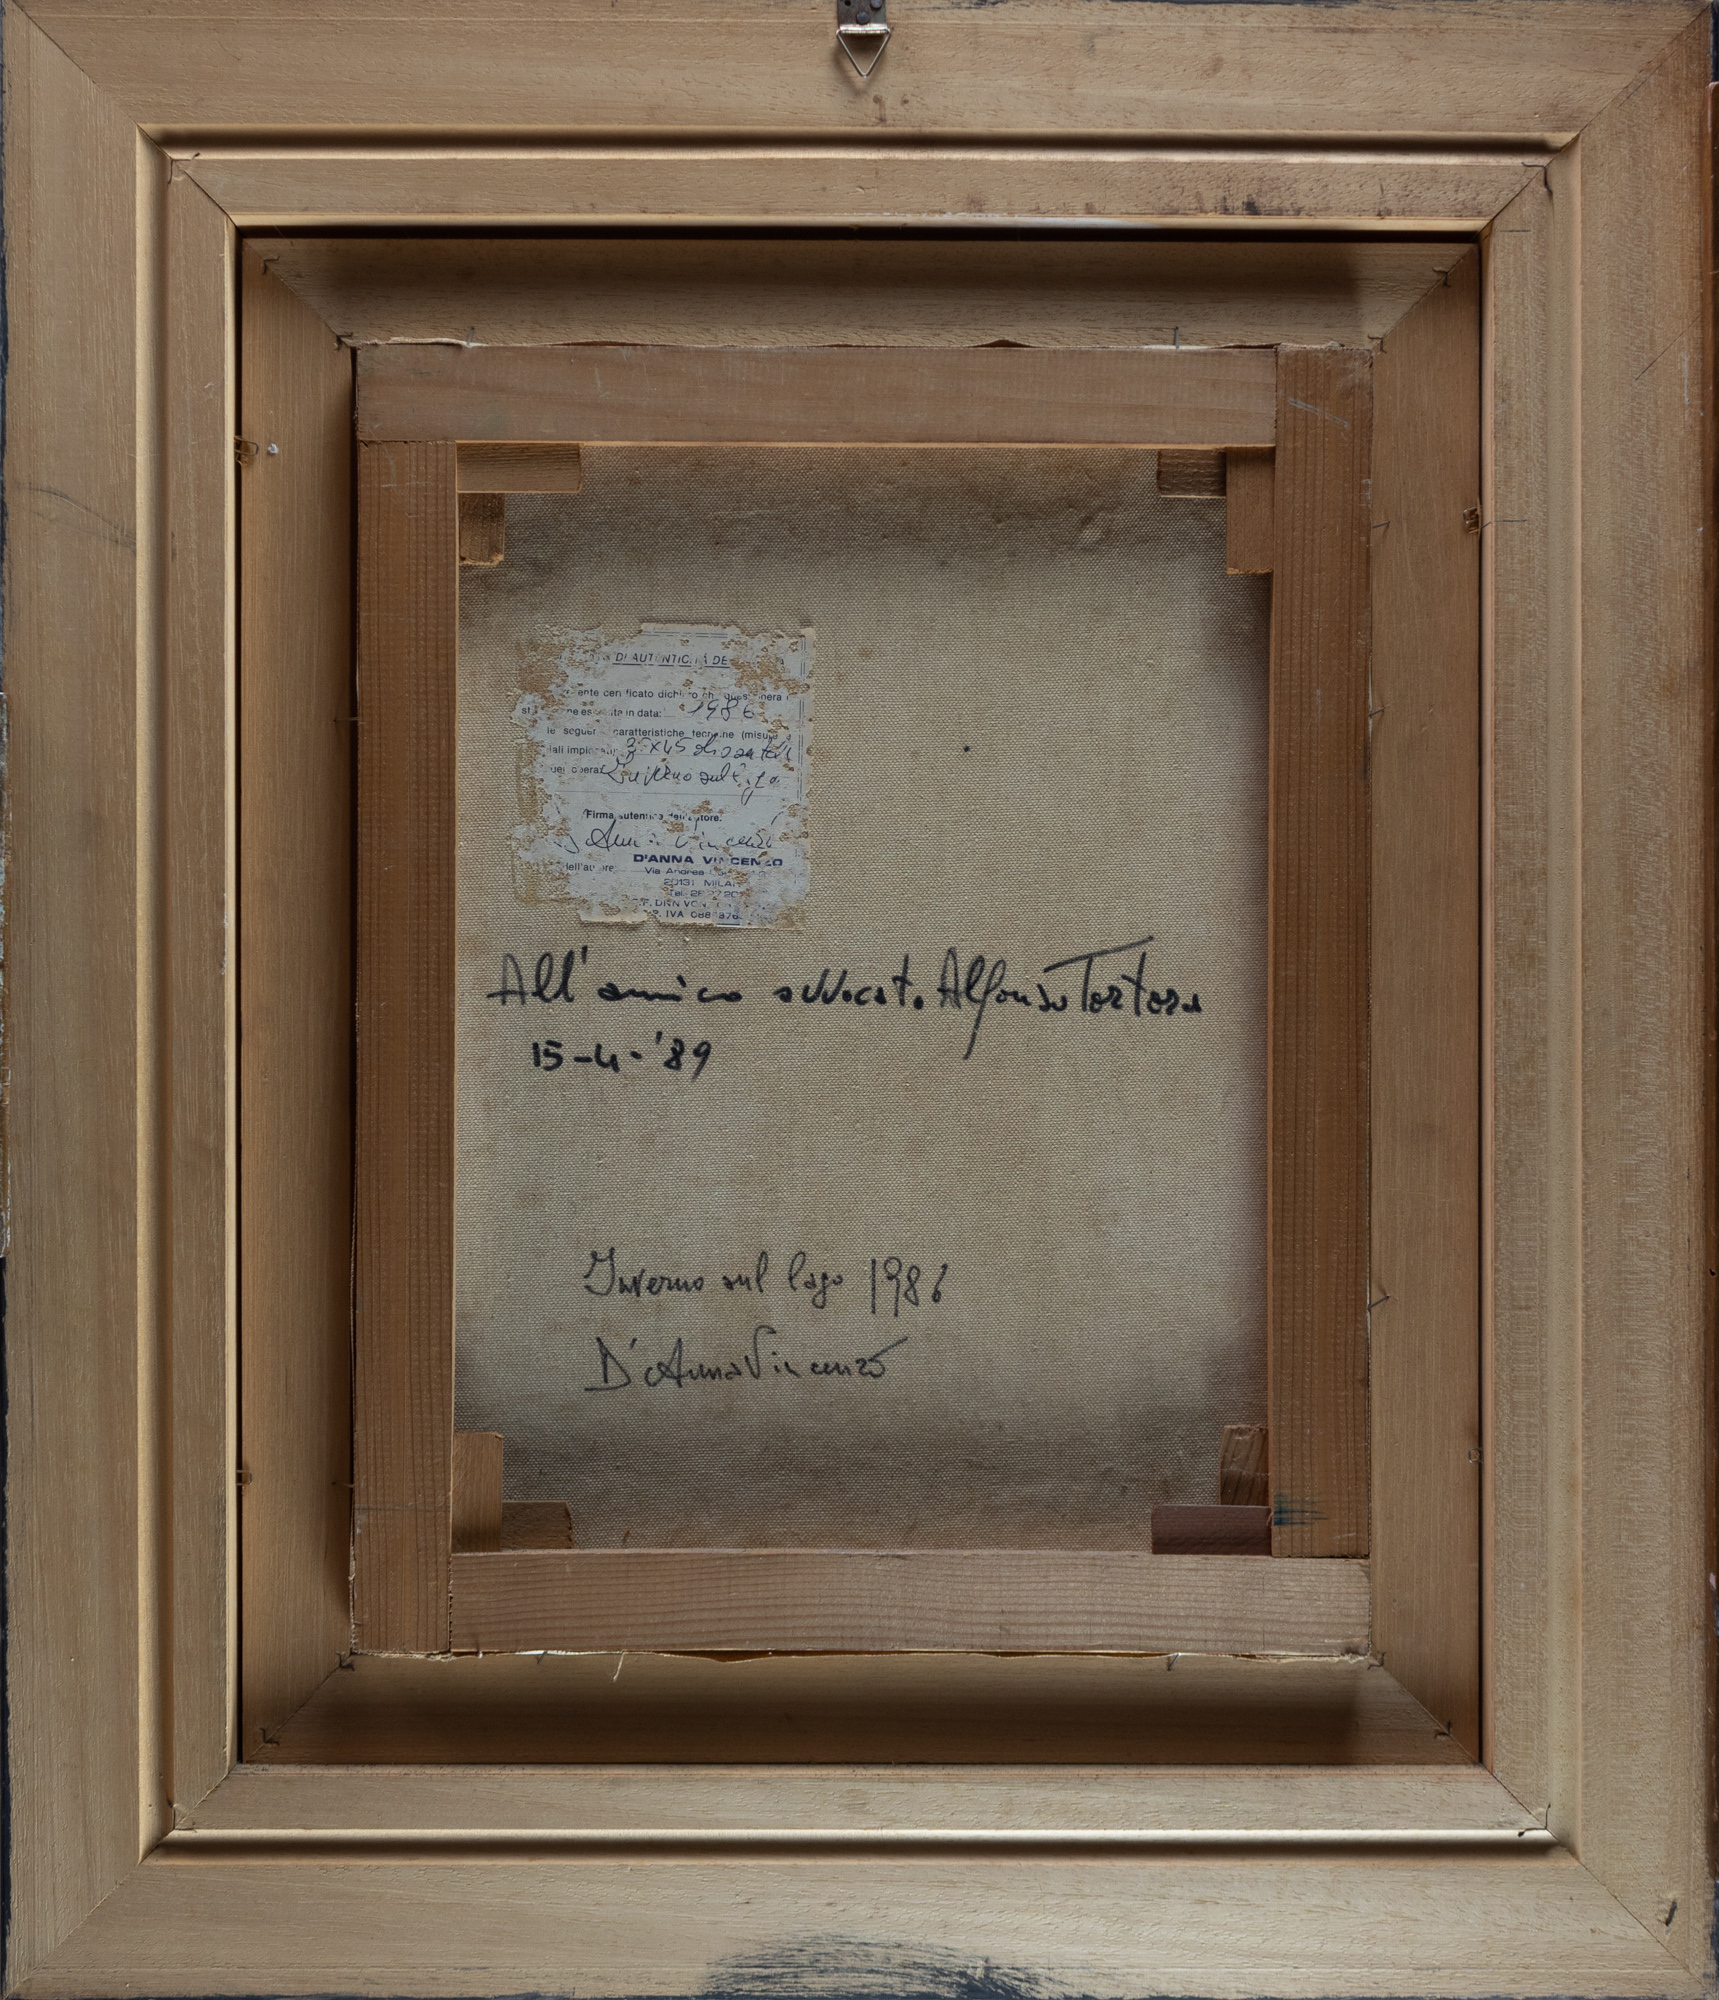 DI AUTENTICITÀ DE
ente certificato dichiaro che quest'opera
in data: 1986
le seguenti caratteristiche tecniche (misure
iali impiegati) 35x45 olio su tela
dell'opera: Inverno sul lago
Firma autentica dell'autore:
D'Anna Vincenzo
D'ANNA VINCENZO
dell'autore: Via Andrea
20131 MILAN
Tel.
P. IVA
All'amico avvocato Alfonso Tortora
15-4-'89
Inverno sul lago 1986
D'Anna Vincenzo